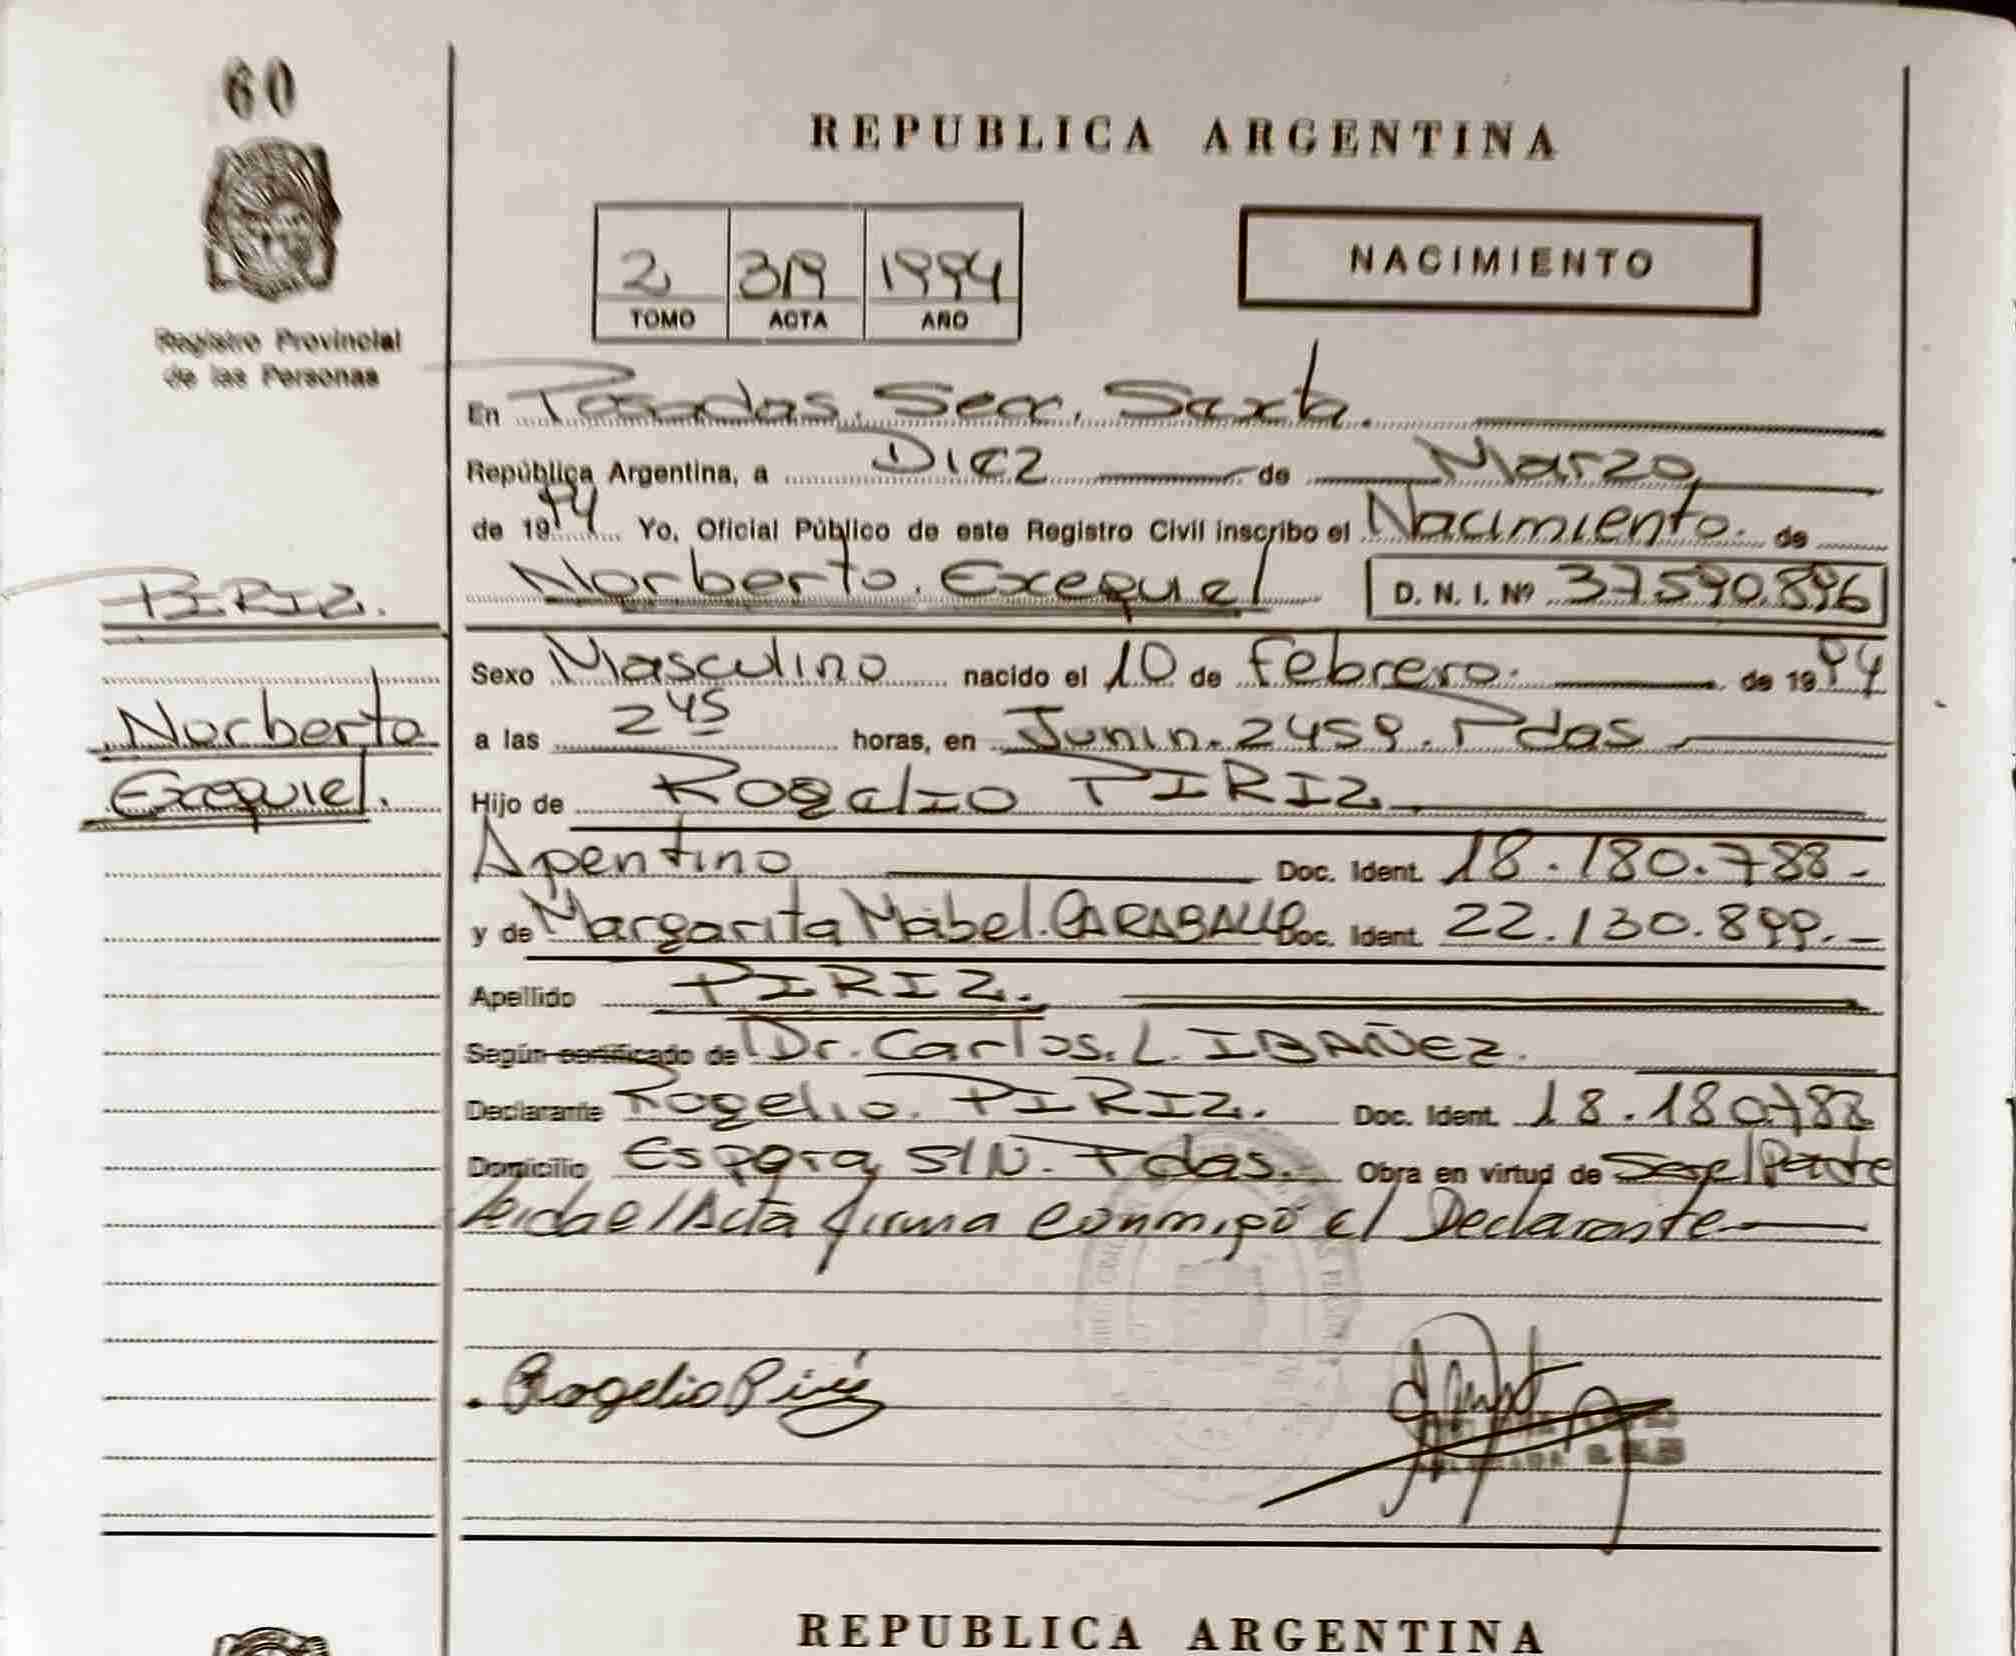 60
REPUBLICA ARGENTINA
2 319 1994
TOMO ACTA AÑO
NACIMIENTO
Registro Provincial
de las Personas
En Posadas. Secc. Sexta.
República Argentina, a Diez de Marzo
de 1994 Yo, Oficial Público de este Registro Civil inscribo el Nacimiento. de
Norberto. Exequiel D. N. I. Nº 37590.896
PIRIZ.
Norberto
Exequiel.
Sexo Masculino nacido el 10 de Febrero. de 1994
a las 2 45 horas, en Junin. 2459. Pdas
Hijo de Rogelio PIRIZ
Argentino Doc. Ident. 18.180.788.-
y de Margarita Mabel. CARABALLO Doc. Ident. 22.130.899.-
Apellido PIRIZ.
Según certificado de Dr. Carlos. L. IBAÑEZ.
Declarante Rogelio. PIRIZ. Doc. Ident. 18.180.788
Domicilio S/N. Pdas. Obra en virtud de
Leida e/Acta firma conmigo el Declarante
Rogelio Piriz
REPUBLICA ARGENTINA